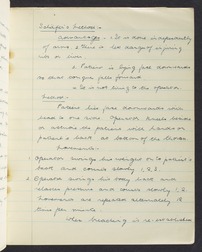 Schäfer's Method :-
Advantages - 1. It is done independently
of arms, & there is less danger of injuring
ribs or liver.
2. Patient is lying face downwards
so that tongue falls forward
3. is not tiring to the operator
Method :-
Patient lies face downwards with
head to one side. Operator kneels beside
or astride the patient with hands on
patient's back at bottom of the thorax
Movements :-
1. Operator swings his weight on to patient's
back and counts slowly 1, 2, 3.
2. Operator swings his body back and
slowly pressure and counts slowly 1, 2.
Movements are repeated
times per minute.
When breathing is re-established